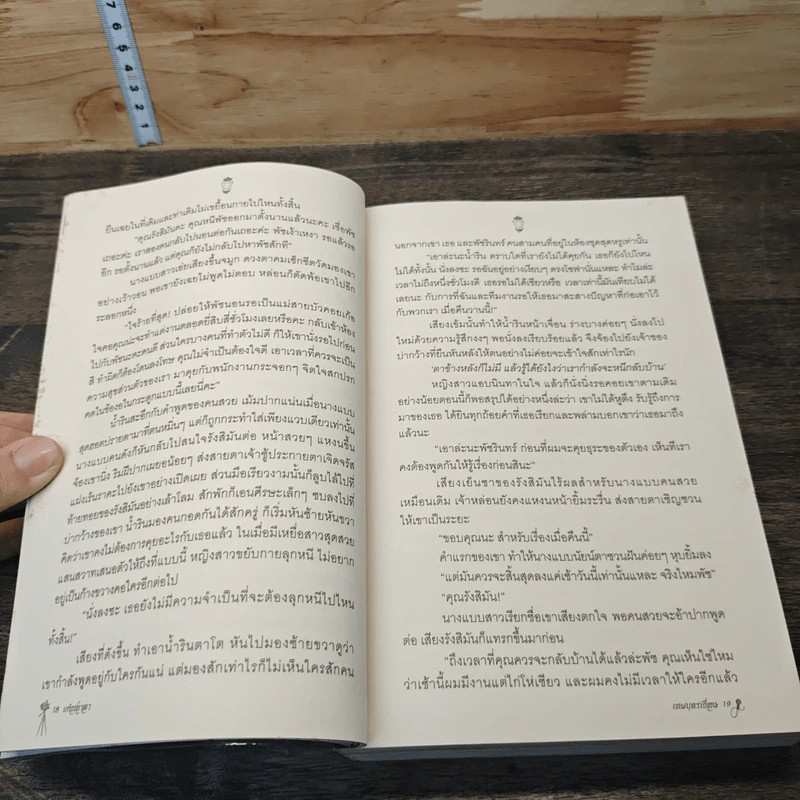 7
6
5
4
3
2
1
ยืนเฉยในที่เดิมและท่าเดิมไม่เขยื้อนกายไปไหนทั้งสิ้น
“คุณรังสิมันคะ คุณหนีพัชออกมาตั้งนานแล้วนะคะ เชื่อพัช
เถอะค่ะ เราสองคนกลับไปนอนต่อกันเถอะค่ะ พัชเง้าเหงา รอแล้วรอ
อีก รอตั้งนานแล้ว แต่คุณก็ยังไม่กลับไปหาพัชสักที”
นางแบบสาวเอ่ยเสียงขึ้นจมูก ดวงตาคมเซ็กซี่ตวัดมองเขา
อย่างเว้าวอน พอเขายังเฉยไม่พูดไม่ตอบ หล่อนก็ตัดพ้อเขาไปอีก
ระลอกหนึ่ง
“ใจร้ายที่สุด! ปล่อยให้พัชนอนรอเป็นแม่สายบัวคอยเก้อ
ใจคอคุณน่ะจะทำแต่งานตลอดยี่สิบสี่ชั่วโมงเลยหรือคะ กลับเข้าห้อง
ไปกับพัชนะคะคนดี ส่วนใครบางคนที่ทำตัวไม่ดี ก็ให้เขานั่งรอไปก่อน
สิ ทำผิดก็ต้องโดนลงโทษ คุณไม่จำเป็นต้องใจดี เอาเวลาที่ควรจะเป็น
ความสุขส่วนตัวของเรา มาคุยกับพนักงานกระจอกๆ จิตใจสกปรก
คดในข้องอในกระดูกแบบนี้เลยนี่คะ”
น้ำรินสะอึกกับคำพูดของคนสวย เม้มปากแน่นเมื่อนางแบบ
สุดฮอตปรายตามาที่ตนหมิ่นๆ แต่ก็ถูกกระทำใส่เพียงแวบเดียวเท่านั้น
นางแบบคนดังก็หันกลับไปสนใจรังสิมันต่อ หน้าสวยๆ แหงนขึ้น
จ้องเขานิ่ง ริมฝีปากเผยอน้อยๆ ส่งสายตาเจ้าชู้ประกายตาเจิดจรัส
แฝงเร้นราคะไปยังเขาอย่างเปิดเผย ส่วนมือเรียวงามนั้นก็ลูบไล้ไปที่
ท้ายทอยของรังสิมันอย่างเล้าโลม สักพักก็เอนศีรษะเล็กๆ ซบลงไปที่
บ่ากว้างของเขา น้ำรินมองคนกอดกันได้สักครู่ ก็เริ่มหันซ้ายหันขวา
คิดว่าเขาคงไม่ต้องการคุยอะไรกับเธอแล้ว ในเมื่อมีเหยื่อสาวสุดสวย
แสนสวาทเสนอตัวให้ถึงที่แบบนี้ หญิงสาวขยับกายลุกหนี ไม่อยาก
อยู่เป็นก้างขวางคอใครอีกต่อไป
“นั่งลงซะ เธอยังไม่มีความจำเป็นที่จะต้องลุกหนีไปไหน
ทั้งสิ้น!”
เสียงที่ดังขึ้น ทำเอาน้ำรินตาโต หันไปมองซ้ายขวาดูว่า
เขากำลังพูดอยู่กับใครกันแน่ แต่มองสักเท่าไรก็ไม่เห็นใครสักคน
18
นอกจากเขา เธอ และพัชรินทร์ คนสามคนที่อยู่ในห้องชุดสุดหรูเท่านั้น
“เอาล่ะนะน้ำริน ตราบใดที่เรายังไม่ได้คุยกัน เธอก็ยังไปไหน
ไม่ได้ทั้งนั้น นั่งลงซะ รอฉันอยู่อย่างเงียบๆ ตรงโซฟานั่นแหละ ทำไมล่ะ
เวลาไม่ถึงหนึ่งชั่วโมงดี เธอรอไม่ได้เชียวหรือ เวลาเท่านี้มันเทียบไม่ได้
เลยนะ กับการที่ฉันและทีมงานรอให้เธอมาสะสางปัญหาที่ก่อเอาไว้
กับพวกเรา เมื่อคืนวานนี้!”
เสียงเข้มนั้นทำให้น้ำรินหน้าเจื่อน ร่างบางค่อยๆ นั่งลงไป
ใหม่ด้วยความรู้สึกงงๆ พอนั่งลงเรียบร้อยแล้ว จึงจ้องไปยังเจ้าของ
บ่ากว้างที่ยืนหันหลังให้ตนอย่างไม่ค่อยจะเข้าใจสักเท่าไรนัก
‘ตาข้างหลังก็ไม่มี แล้วรู้ได้ยังไงว่าเรากำลังจะหนีกลับบ้าน’
หญิงสาวแอบนินทาในใจ แล้วก็นั่งนิ่งรอคอยเขาตามเดิม
อย่างน้อยตอนนี้ก็พอสรุปได้อย่างหนึ่งล่ะว่า เขาไม่ได้หูตึง รับรู้ถึงการ
มาของเธอ ได้ยินทุกถ้อยคำที่เธอเรียกและพล่ามบอกเขาว่าเธอมาถึง
แล้วนะ
“เอาล่ะนะพัชรินทร์ ก่อนที่ผมจะคุยธุระของตัวเอง เห็นทีเรา
คงต้องพูดกันให้รู้เรื่องก่อนสินะ”
เสียงเย็นชาของรังสิมันไร้ผลสำหรับนางแบบคนสวย
เหมือนเดิม เจ้าหล่อนยังคงแหงนหน้ายิ้มระรื่น ส่งสายตาเชิญชวน
ให้เขาเป็นระยะ
“ขอบคุณนะ สำหรับเรื่องเมื่อคืนนี้”
คำแรกของเขา ทำให้นางแบบนัยน์ตาชวนฝันค่อยๆ หุบยิ้มลง
“แต่มันควรจะสิ้นสุดลงแค่เช้าวันนี้เท่านั้นแหละ จริงไหมพัช”
“คุณรังสิมัน!”
นางแบบสาวเรียกชื่อเขาเสียงตกใจ พอคนสวยจะอ้าปากพูด
ต่อ เสียงรังสิมันก็แทรกขึ้นมาก่อน
“ถึงเวลาที่คุณควรจะกลับบ้านได้แล้วล่ะพัช คุณเห็นใช่ไหม
ว่าเช้านี้ผมมีงานแต่ไก่โห่เชียว และผมคงไม่มีเวลาให้ใครอีกแล้ว
19